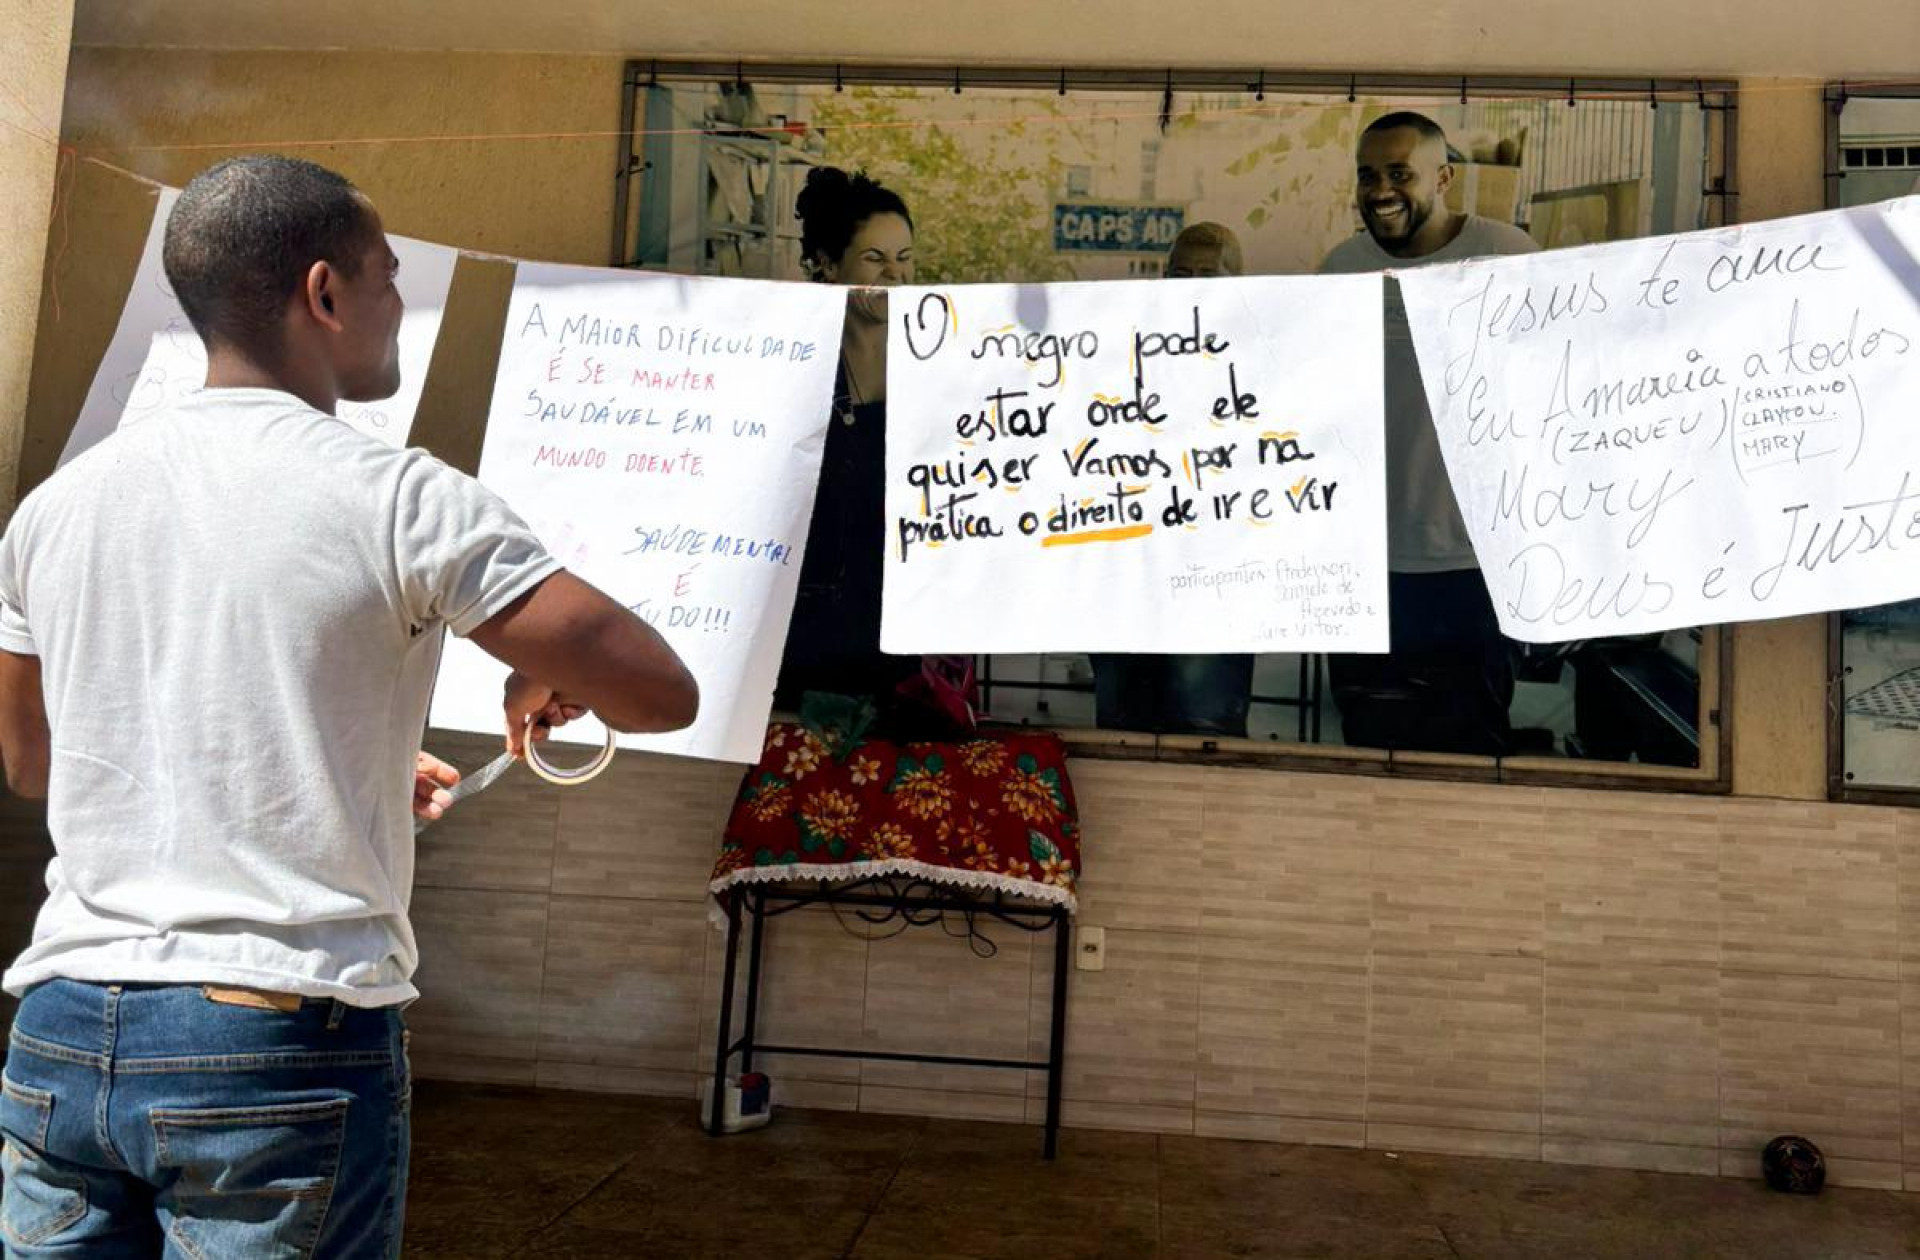 A MAIOR DIFICULDADE
É SE MANTER
SAUDÁVEL EM UM
MUNDO DOENTE.
SAÚDE MENTAL
É
TUDO!!!
CAPS AD
O negro pode
estar onde ele
quiser Vamos por na
prática o direito de ir e vir
participantes Anderson,
Azevedo e
Vitor.
Jesus te ama
Eu Amareia a todos
(ZAQUEU) (CRISTIANO
CLAYTON.
MARY)
Mary
Deus é Justo